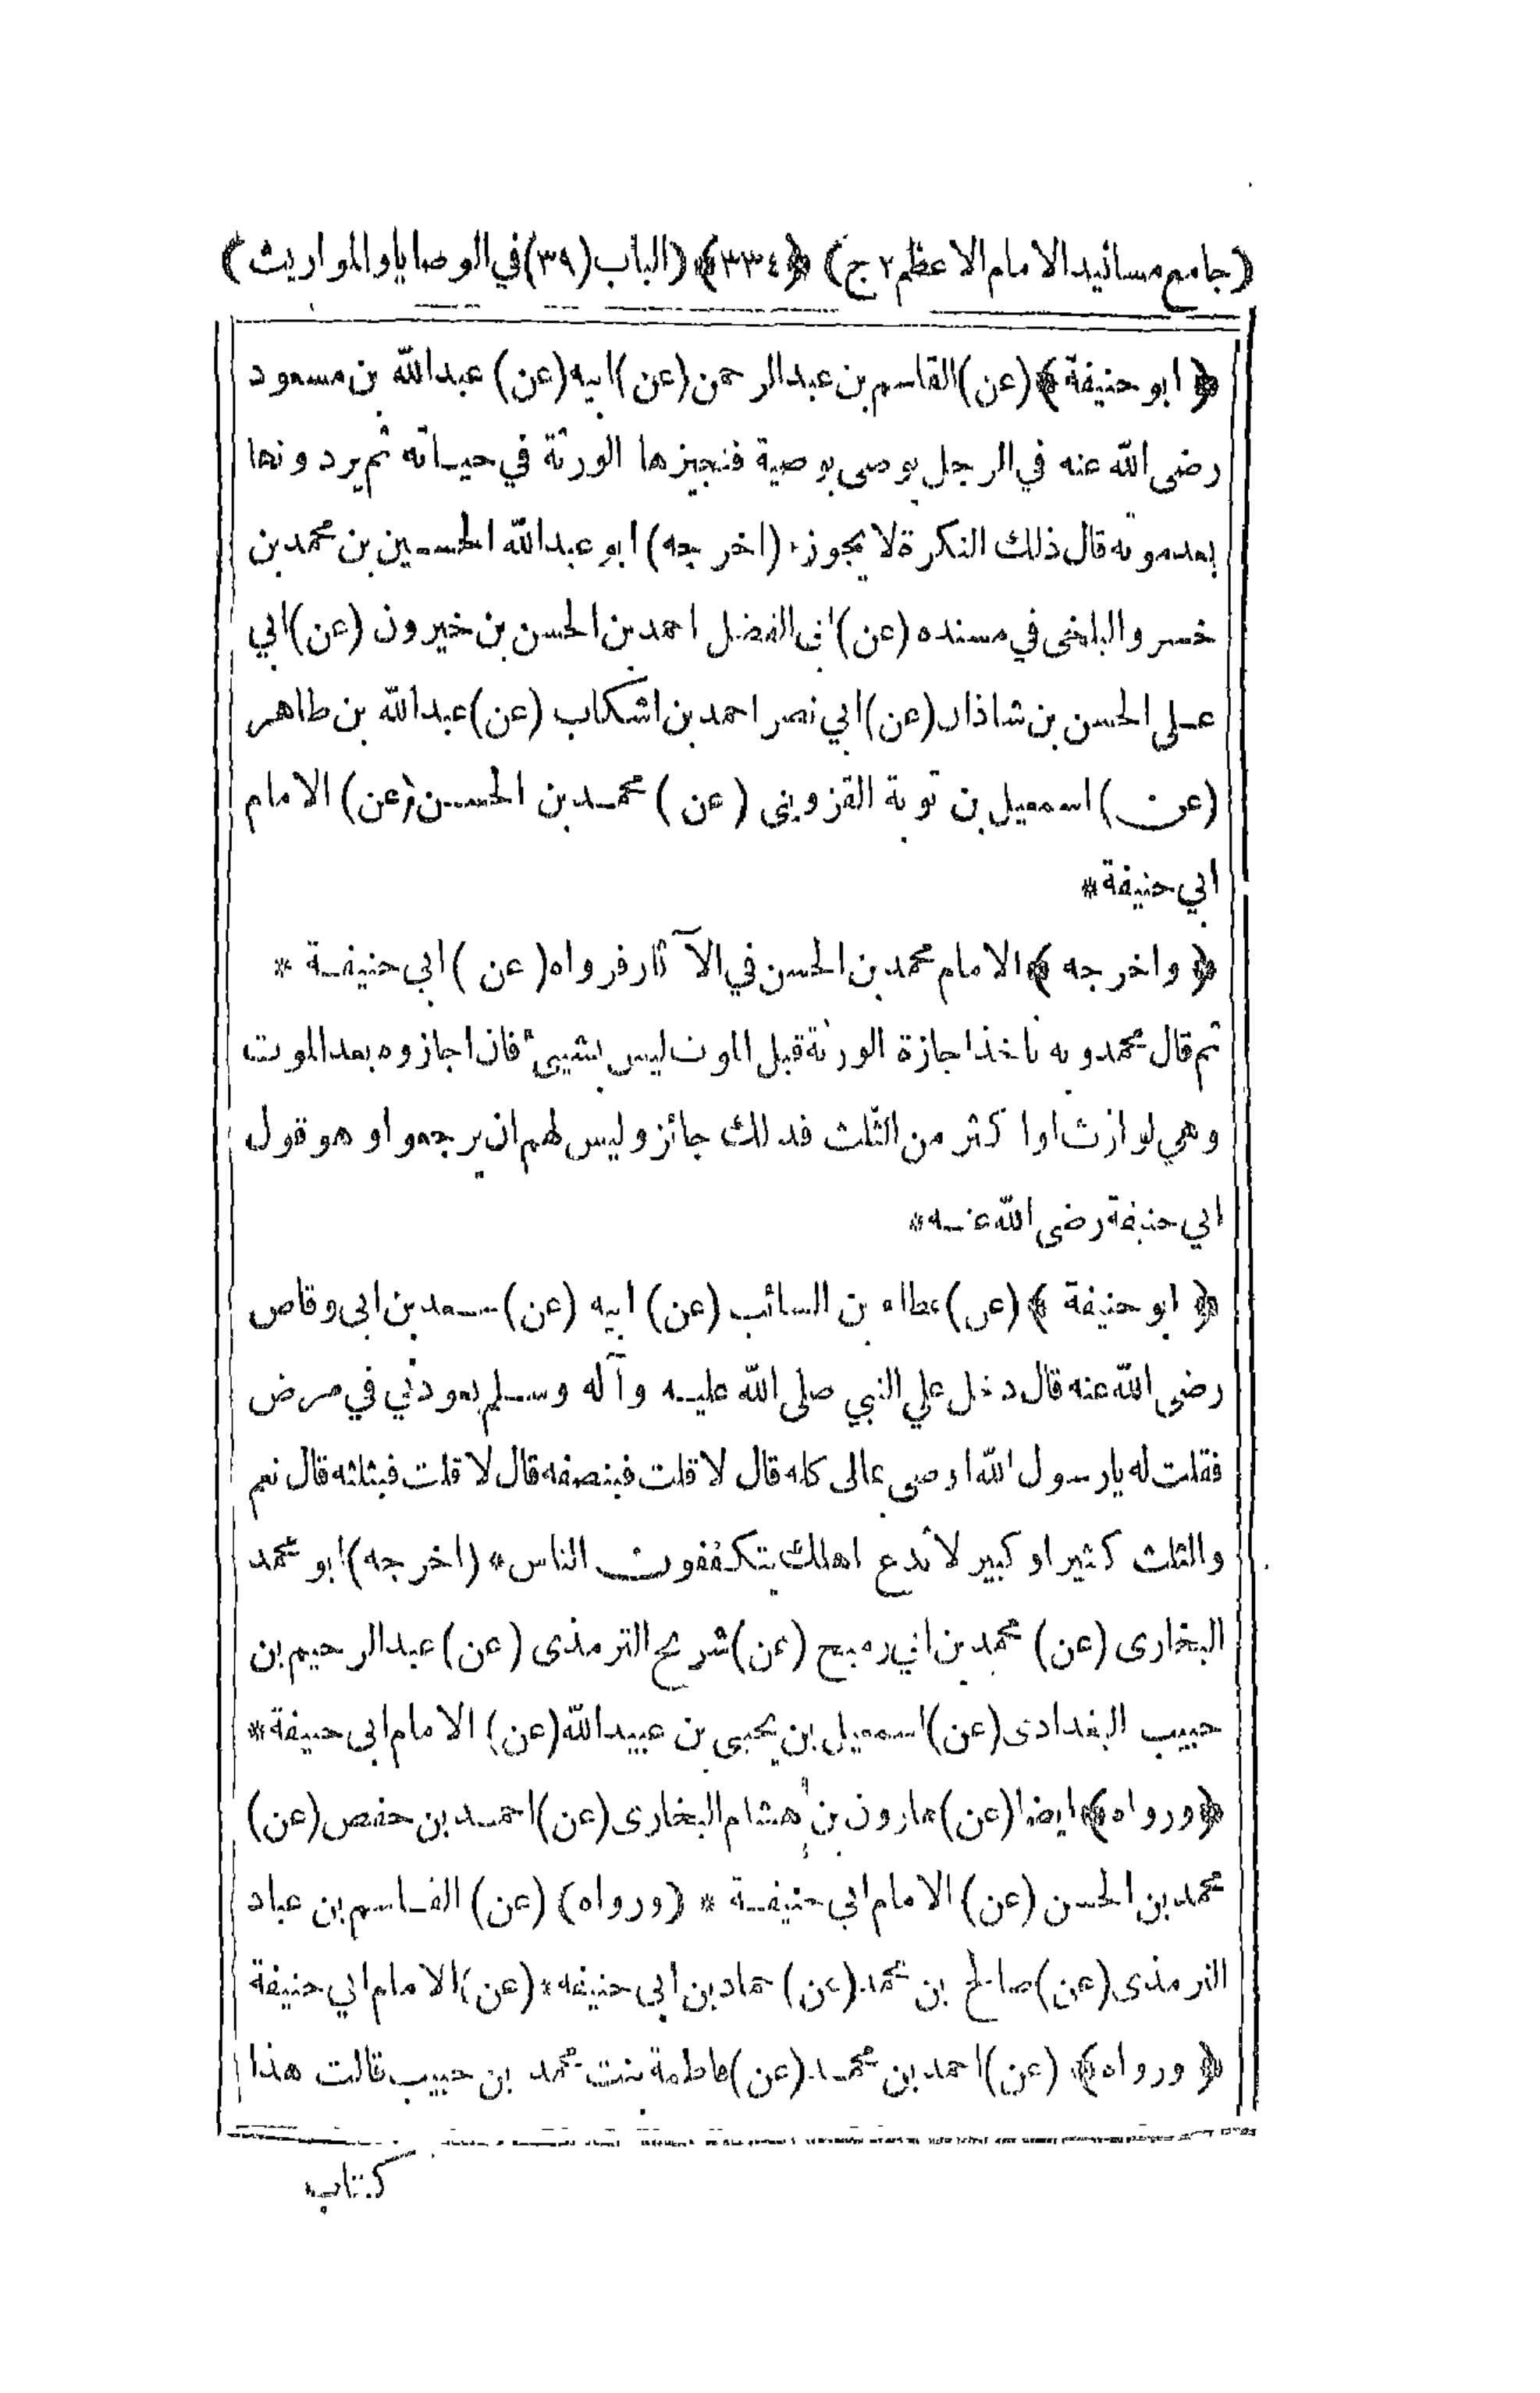 (جامع مسانيد الامام الاعظم ج٢) ﴿٣٣٤﴾ (الباب (٣٩) في الوصايا والمواريث)
﴿ ابو حنيفة ﴾ (عن) القاسم بن عبد الرحمن (عن) ابيه (عن) عبد الله بن مسعود
رضى الله عنه في الرجل يوصى بوصية فتجيزها الورثة في حياته ثم يردونها
بعد موته قال ذلك النكرة لا يجوز * (اخرجه) ابو عبد الله الحسين بن محمد بن
خسرو البلخى في مسنده (عن) ابى الفضل احمد بن الحسن بن خيرون (عن) ابي
على الحسن بن شاذان (عن) ابي نصر احمد بن اشكاب (عن) عبد الله بن طاهر
(عن) اسمعيل بن توبة القزوينى (عن) محمد بن الحسن (عن) الامام
ابي حنيفة *
﴿ واخرجه ﴾ الامام محمد بن الحسن في الآثار فرواه (عن) ابي حنيفة *
ثم قال محمد وبه ناخذ اجازة الورثة قبل الموت ليس بشيئ فان اجازوه بعد الموت
وهي لوارث او اكثر من الثلث فذلك جائز وليس لهم ان يرجعوا وهو قول
ابي حنيفة رضى الله عنه *
﴿ ابو حنيفة ﴾ (عن) عطاء بن السائب (عن) ابيه (عن) سعد بن ابى وقاص
رضى الله عنه قال دخل علي النبي صلى الله عليه وآله وسلم يعودني في مرض
فقلت له يا رسول الله اوصى بمالى كله قال لا قلت فبنصفه قال لا قلت فبثلثه قال نعم
والثلث كثير او كبير لا تدع اهلك يتكففون الناس * (اخرجه) ابو محمد
البخارى (عن) محمد بن ابي رميح (عن) شريح الترمذى (عن) عبد الرحيم بن
حبيب البغدادى (عن) اسمعيل بن يحيى بن عبيد الله (عن) الامام ابى حنيفة *
﴿ ورواه ﴾ ايضا (عن) هارون بن هشام البخارى (عن) احمد بن حفص (عن)
محمد بن الحسن (عن) الامام ابي حنيفة * (ورواه) (عن) القاسم بن عباد
الترمذى (عن) صالح بن محمد (عن) حماد بن ابى حنيفه * (عن) الامام ابي حنيفة
﴿ ورواه ﴾ (عن) احمد بن محمد (عن) فاطمة بنت محمد بن حبيب قالت هذا
كتاب